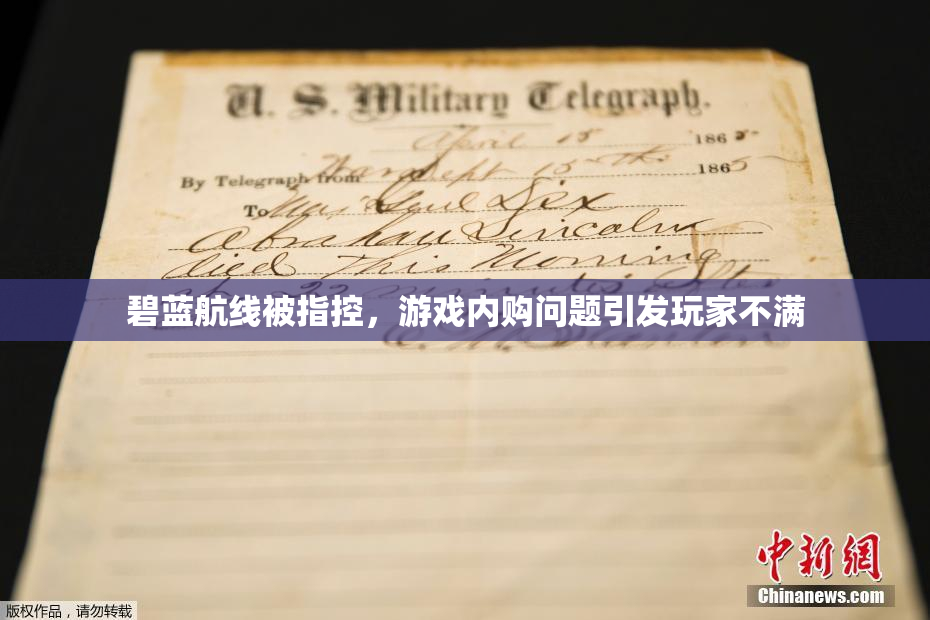 U. S. Military Telegraph.
April 15 1865
By Telegraph from War Dept 15th 1865
To Maj Genl Dix
Abraham Lincoln
died This Morning
22 minutes after
碧蓝航线被指控，游戏内购问题引发玩家不满
E. M. Stanton
中新网
Chinanews.com
版权作品，请勿转载